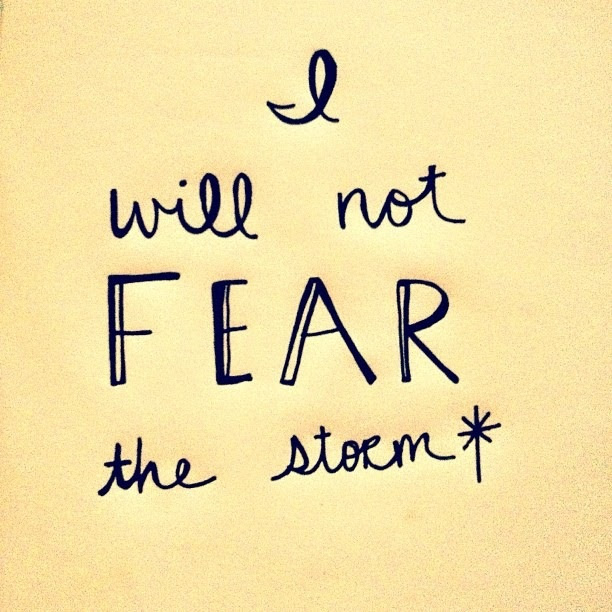 I
will not
FEAR
the storm*